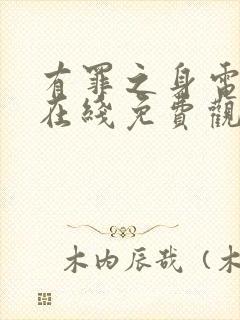 有罪之身電
在綫免費觀
木内辰哉（木